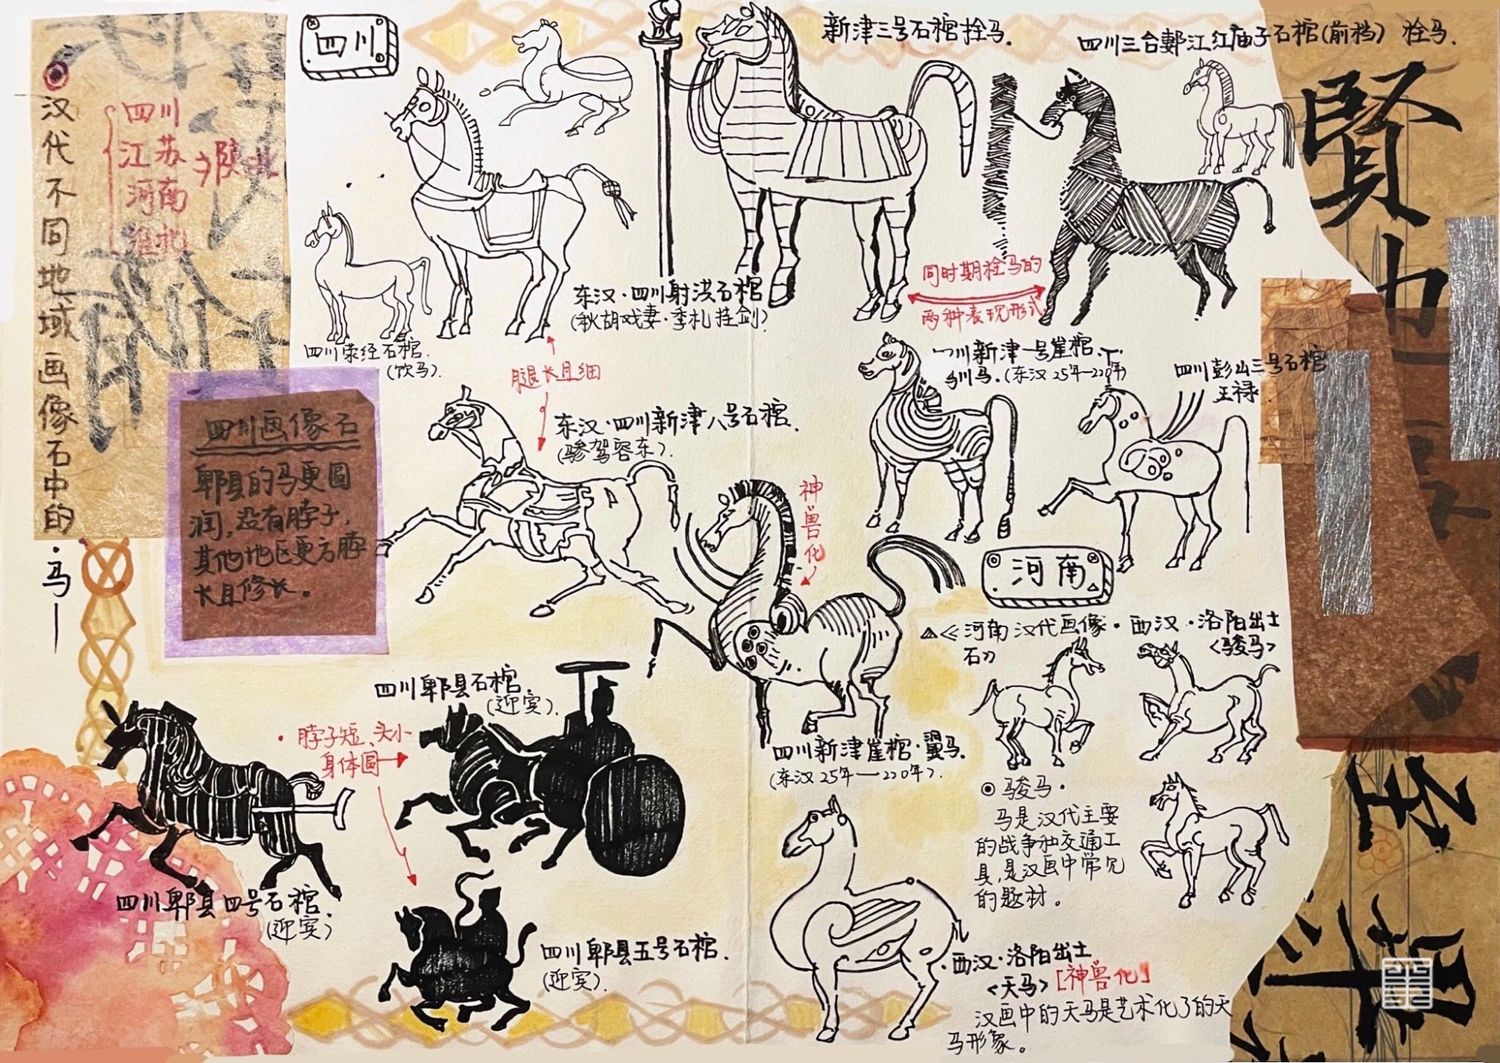 汉代不同地域画像石中的·马——
四川
江苏
河南
陕北
四川
新津三号石棺拴马.
四川三台郪江红庙子石棺(前档) 拴马.
东汉·四川射洪石棺
(秋胡戏妻·季札挂剑)
四川荥经石棺.
(饮马)
腿长且细
同时期拴马的
两种表现形式
东汉·四川新津八号石棺.
(骖驾容车).
川新津一号崖棺.
驯马.(东汉25年—220年)
四川彭山三号石棺
王禄.
四川画像石
郫县的马更圆
润,没有脖子,
其他地区更方脖
长且修长。
神兽化
河南
《河南汉代画像
石》
西汉·洛阳出土
<骏马>
四川郫县石棺
(迎宾).
·脖子短、头小
身体圆
四川新津崖棺·翼马.
(东汉25年—220年).
骏马·
马是汉代主要
的战争和交通工
具,是汉画中常见
的题材。
四川郫县四号石棺.
(迎宾)
四川郫县五号石棺.
(迎宾).
·西汉·洛阳出土
<天马>[神兽化]
汉画中的天马是艺术化了的天
马形象。
賢